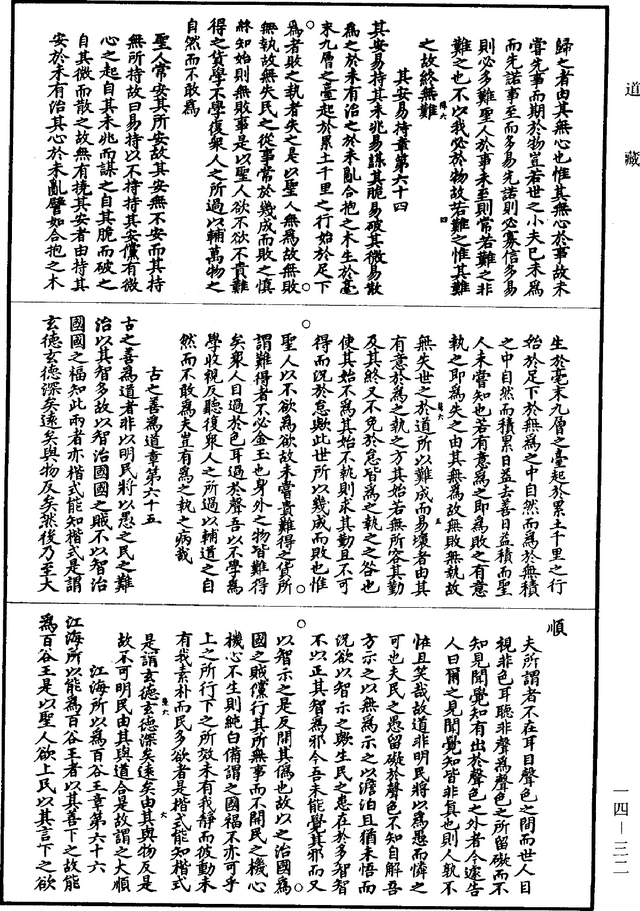 道藏
歸之者由其無心也惟其無心於事故未
嘗先事而期於物豈若世之小夫已未為
而先諾事至而多易先諾則必寡信多易
則必多難聖人於事未至則常若難之非
難之也不以我必於物故若難之惟其難
之故終無難
四
其安易持章第六十四
其安易持其未兆易謀其脆易破其微易散
為之於未有治之於未亂合抱之木生於毫
末九層之臺起於累土千里之行始於足下
為者敗之執者失之是以聖人無為故無敗
無執故無失民之從事常於幾成而敗之慎
終如始則無敗事是以聖人欲不欲不貴難
得之貨學不學復衆人之所過以輔萬物之
自然而不敢為
聖人常安其所安故其安無不安而其持
無所持故曰易持以不持持其安儻有微
心之起自其未兆而謀之自其脆而破之
自其微而散之故無有撓其安者由持其
安於未有治其心於未亂譬如合抱之木
生於毫末九層之臺起於累土千里之行
始於足下於無為之中自然而為於無積
之中自然而積累日益去善日益積而聖
人未嘗知也若有意為之即為敗之有意
執之即為失之由其無為故無敗無執故
無失世之於道所以難成而易壞者由其
五
有意於為之執之方其始若無所容其勤
及其終又不免於怠皆為之執之之咎也
使其始不為其始不執則求其勤且不可
得而況於怠歟此世所以幾成而敗也惟
聖人以不欲為欲故未嘗貴難得之貨所
謂難得者不必金玉也身外之物皆難得
矣衆人目過於色耳過於聲吾以不學為
學收視反聽復衆人之所過以輔道之自
然而不敢為夫豈有為之執之病哉
古之善為道章第六十五
古之善為道者非以明民將以愚之民之難
治以其智多故以智治國國之賊不以智治
國國之福知此兩者亦楷式能知楷式是謂
玄德玄德深矣遠矣與物反矣然後乃至大
順
夫所謂者不在耳目聲色之間而世人目
視非色耳聽非聲為聲色之所留礙而不
知見聞覺知有出於聲色之外者今遽告
人曰爾之見聞覺知皆非真也則人孰不
怪且笑哉故道非明民將以為愚而憐之
可也夫民之愚留礙於聲色不知自解吾
方示之以無為示之以澹泊且猶未悟而
況欲以智示之歟生民之患在於多智智
不以正其智為邪今吾未能覺其邪而又
以智示之是反開其偽也故以之治國為
國之賊儻行其所無事而不開民之機心
機心不生則純白備謂之國福不亦可乎
上之所行下之所效未有我靜而彼動未
有我素朴而民多欲者是楷式能知楷式
是謂玄德玄德深矣遠矣由其與物反是
六
故不可明民由其與道合是故謂之大順
江海所以為百谷王章第六十六
江海所以能為百谷王者以其善下之故能
為百谷王是以聖人欲上民以其言下之欲
一四—三二二